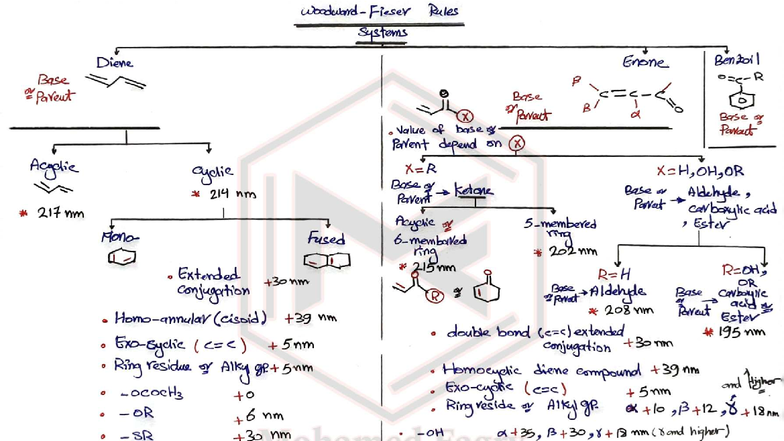 Woodward-Fieser Rules
Systems
Diene
Base
or
Parent
Acyclic
* 217 nm
Cyclic
* 214 nm
Mono-
Fused
• Extended
conjugation +30nm
• Homo-annular (cisoid) +39 nm
• Exo-cyclic (c=c) +5nm
• Ring residue or Alkyl gp. +5nm
• -OCOCH3 +0
• -OR +6 nm
• -SR +30 nm
Enone
Base
or
Parent
X
β
β
C=C-C
α
O
• Value of base or
Parent depend on X
X=R
Base or
Parent → Ketone
Acyclic or
6-membered
ring
* 215nm
O
R
or
O
5-membered
ring
* 202nm
X=H,OH,OR
Base or
Parent → Aldehyde,
carboxylic acid
, Ester
R=H
Base or
Parent → Aldehyde
* 208 nm
R=OH,
OR
Base or
Parent → carboxylic
acid or
Ester
* 195nm
• double bond (c=c) extended
conjugation +30nm
• Homocyclic diene compound +39nm
• Exo-cyclic (c=c) +5nm
and Higher
• Ring reside or Alkyl gp. α+10, β+12, γ +18nm
• -OH α+35, β+30, γ+18 nm (γ and higher)
Benzoil
O=C-R
Base or
Parent
Mohamed